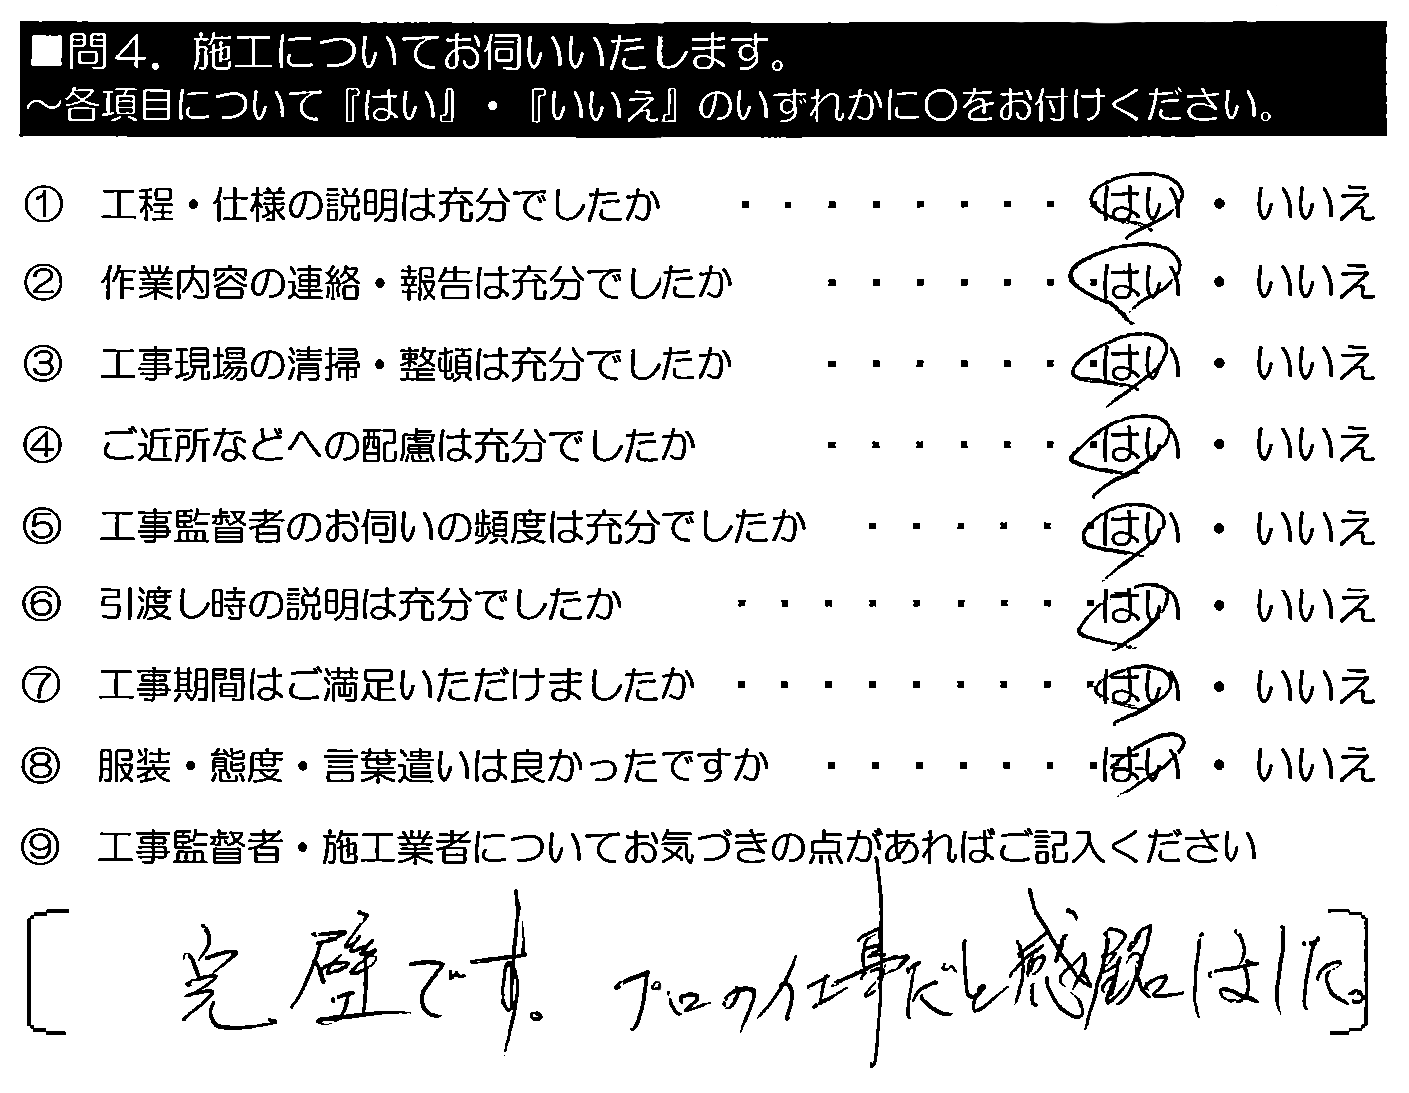 ■問4．施工についてお伺いいたします。
～各項目について『はい』・『いいえ』のいずれかに〇をお付けください。
① 工程・仕様の説明は充分でしたか ・・・・・・・・ はい ・ いいえ
② 作業内容の連絡・報告は充分でしたか ・・・・・・・ はい ・ いいえ
③ 工事現場の清掃・整頓は充分でしたか ・・・・・・・ はい ・ いいえ
④ ご近所などへの配慮は充分でしたか ・・・・・・・ はい ・ いいえ
⑤ 工事監督者のお伺いの頻度は充分でしたか ・・・・・・ はい ・ いいえ
⑥ 引渡し時の説明は充分でしたか ・・・・・・・・・ はい ・ いいえ
⑦ 工事期間はご満足いただけましたか ・・・・・・・・・ はい ・ いいえ
⑧ 服装・態度・言葉遣いは良かったですか ・・・・・・・ はい ・ いいえ
⑨ 工事監督者・施工業者についてお気づきの点があればご記入ください
完璧です。プロの仕事だと感銘しました。